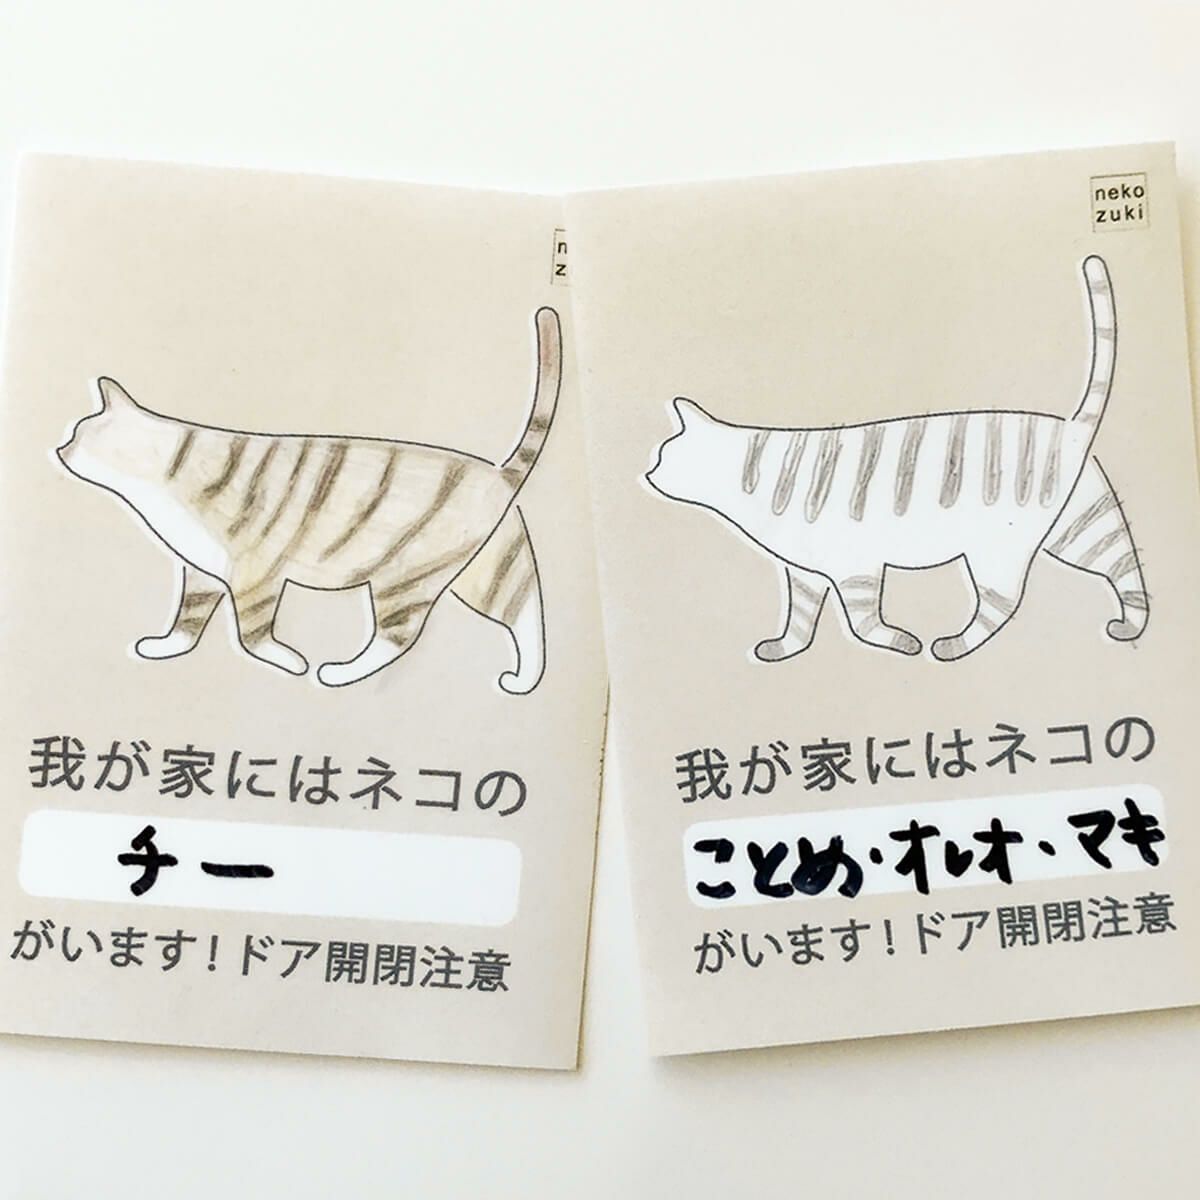 n
z
我が家にはネコの
チー
がいます！ドア開閉注意
neko
zuki
我が家にはネコの
ことめ・オレオ・マキ
がいます！ドア開閉注意